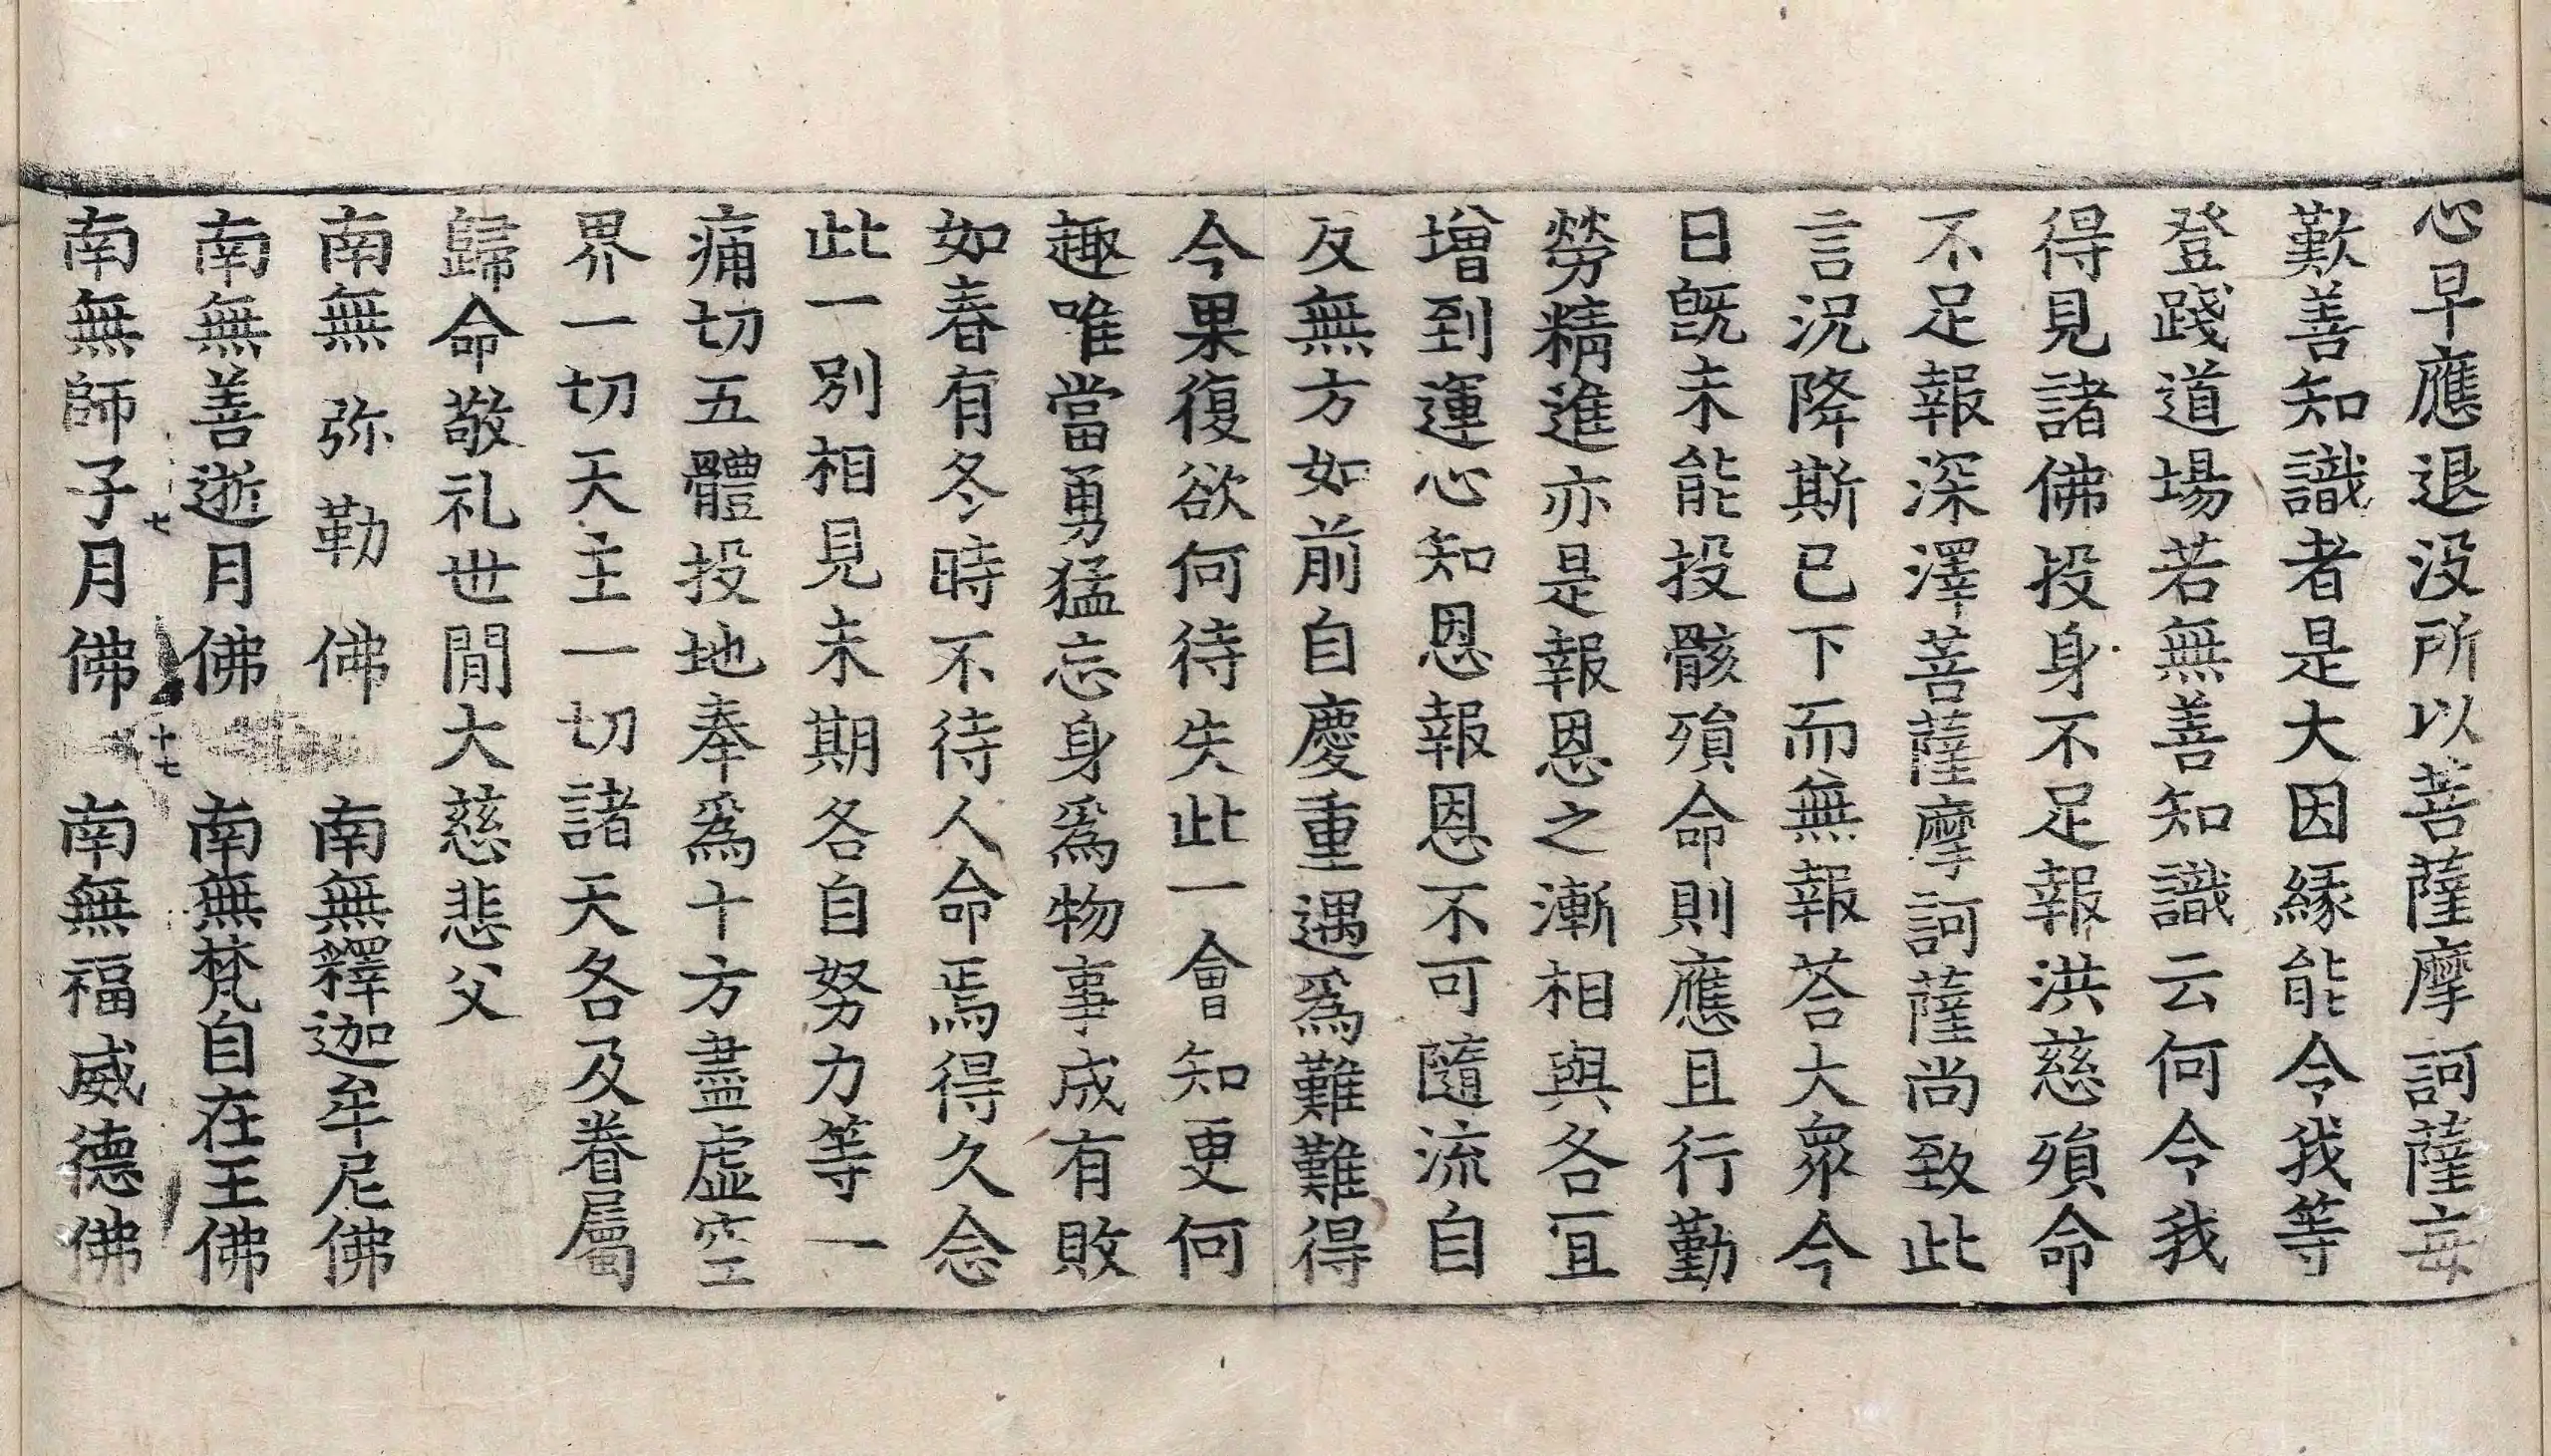 心早應退没所以菩薩摩訶薩每
歎善知識者是大因緣能令我等
登踐道場若無善知識云何令我
得見諸佛投身不足報洪慈殞命
不足報深澤菩薩摩訶薩尚致此
言況降斯已下而無報荅大衆今
日旣未能投骸殞命則應且行勤
勞精進亦是報恩之漸相與各冝
增到運心知恩報恩不可隨流自
反無方如前自慶重遇爲難難得
今果復欲何待失此一會知更何
趣唯當勇猛忘身爲物事成有敗
如春有冬時不待人命焉得久念
此一別相見未期各自努力等一
痛切五體投地奉爲十方盡虛空
界一切天主一切諸天各及眷屬
歸命敬礼世閒大慈悲父
南無弥勒佛 南無釋迦牟尼佛
南無善逝月佛 南無梵自在王佛
七
十七
南無師子月佛 南無福威德佛